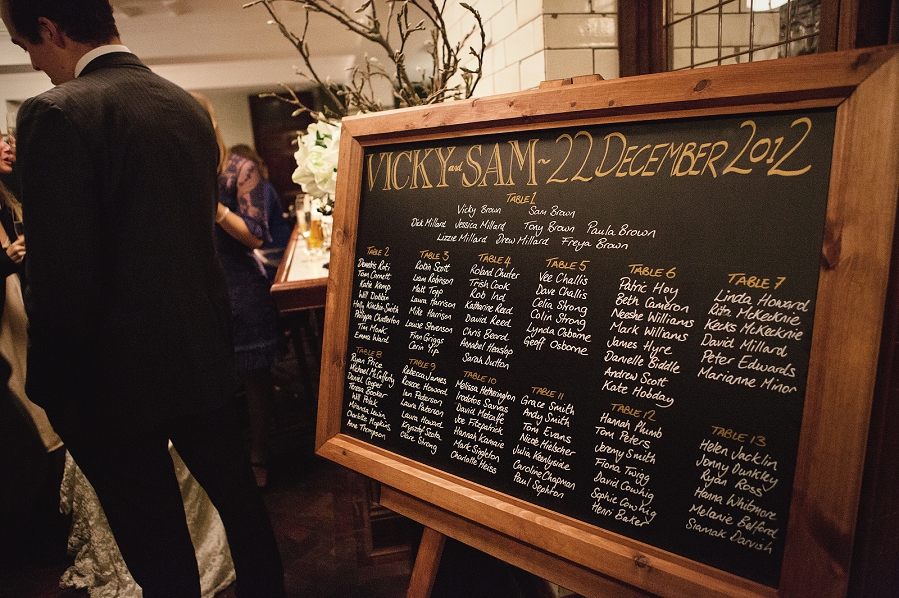 VICKY and SAM ~ 22 DECEMBER 2012
TABLE 1
Vicky Brown Sam Brown
Dick Millard Jessica Millard Tony Brown Paula Brown
Lizzie Millard Drew Millard Freya Brown
TABLE 2
Tom Connett
Katie Kemp
Will Dobbin
Holly Kinchin Smith
Philippa Chatterton
Tim Monk
Emma Ward
TABLE 3
Robin Scott
Liam Robinson
Matt Topp
Laura Harrison
Mike Harrison
Louise Stevenson
Finn Griggs
Corin Yip
TABLE 4
Roland Chuter
Trish Cook
Rob Ind
Katherine Reed
David Reed
Chris Beard
Annabel Heaslop
Sarah Dutton
TABLE 5
Vee Challis
Dave Challis
Celia Strong
Colin Strong
Lynda Osborne
Geoff Osborne
TABLE 6
Patric Hoy
Beth Cameron
Neeshe Williams
Mark Williams
James Hyre
Danielle Biddle
Andrew Scott
Kate Hobday
TABLE 7
Linda Howard
Rita McKecknie
Kecks McKecknie
David Millard
Peter Edwards
Marianne Minor
TABLE 8
Ryan Price
Michael McCafferty
Daniel Cooper
Teresa Booker
Will Polak
Miranda Lewin
Charlotte Hopkins
Anne Thompson
TABLE 9
Rebecca James
Roscoe Howard
Ian Paterson
Laura Paterson
Laura Howard
Krzysztof
Clare Strong
TABLE 10
Melissa Hetherington
Iroditos Savvas
David Metcalfe
Joe Fitzpatrick
Hannah Kanarie
Mark Singleton
Charlotte Heiss
TABLE 11
Grace Smith
Andy Smith
Tom Evans
Nicole Hielscher
Julia Keenlyside
Caroline Chapman
Paul Sephton
TABLE 12
Hannah Plumb
Tom Peters
Jeremy Smith
Fiona Twigg
David Cowhig
Sophie Cowhig
Henri Baker
TABLE 13
Helen Jacklin
Jonny Dunkley
Ryan Ross
Hanna Whitmore
Melanie Belford
Siamak Darvish